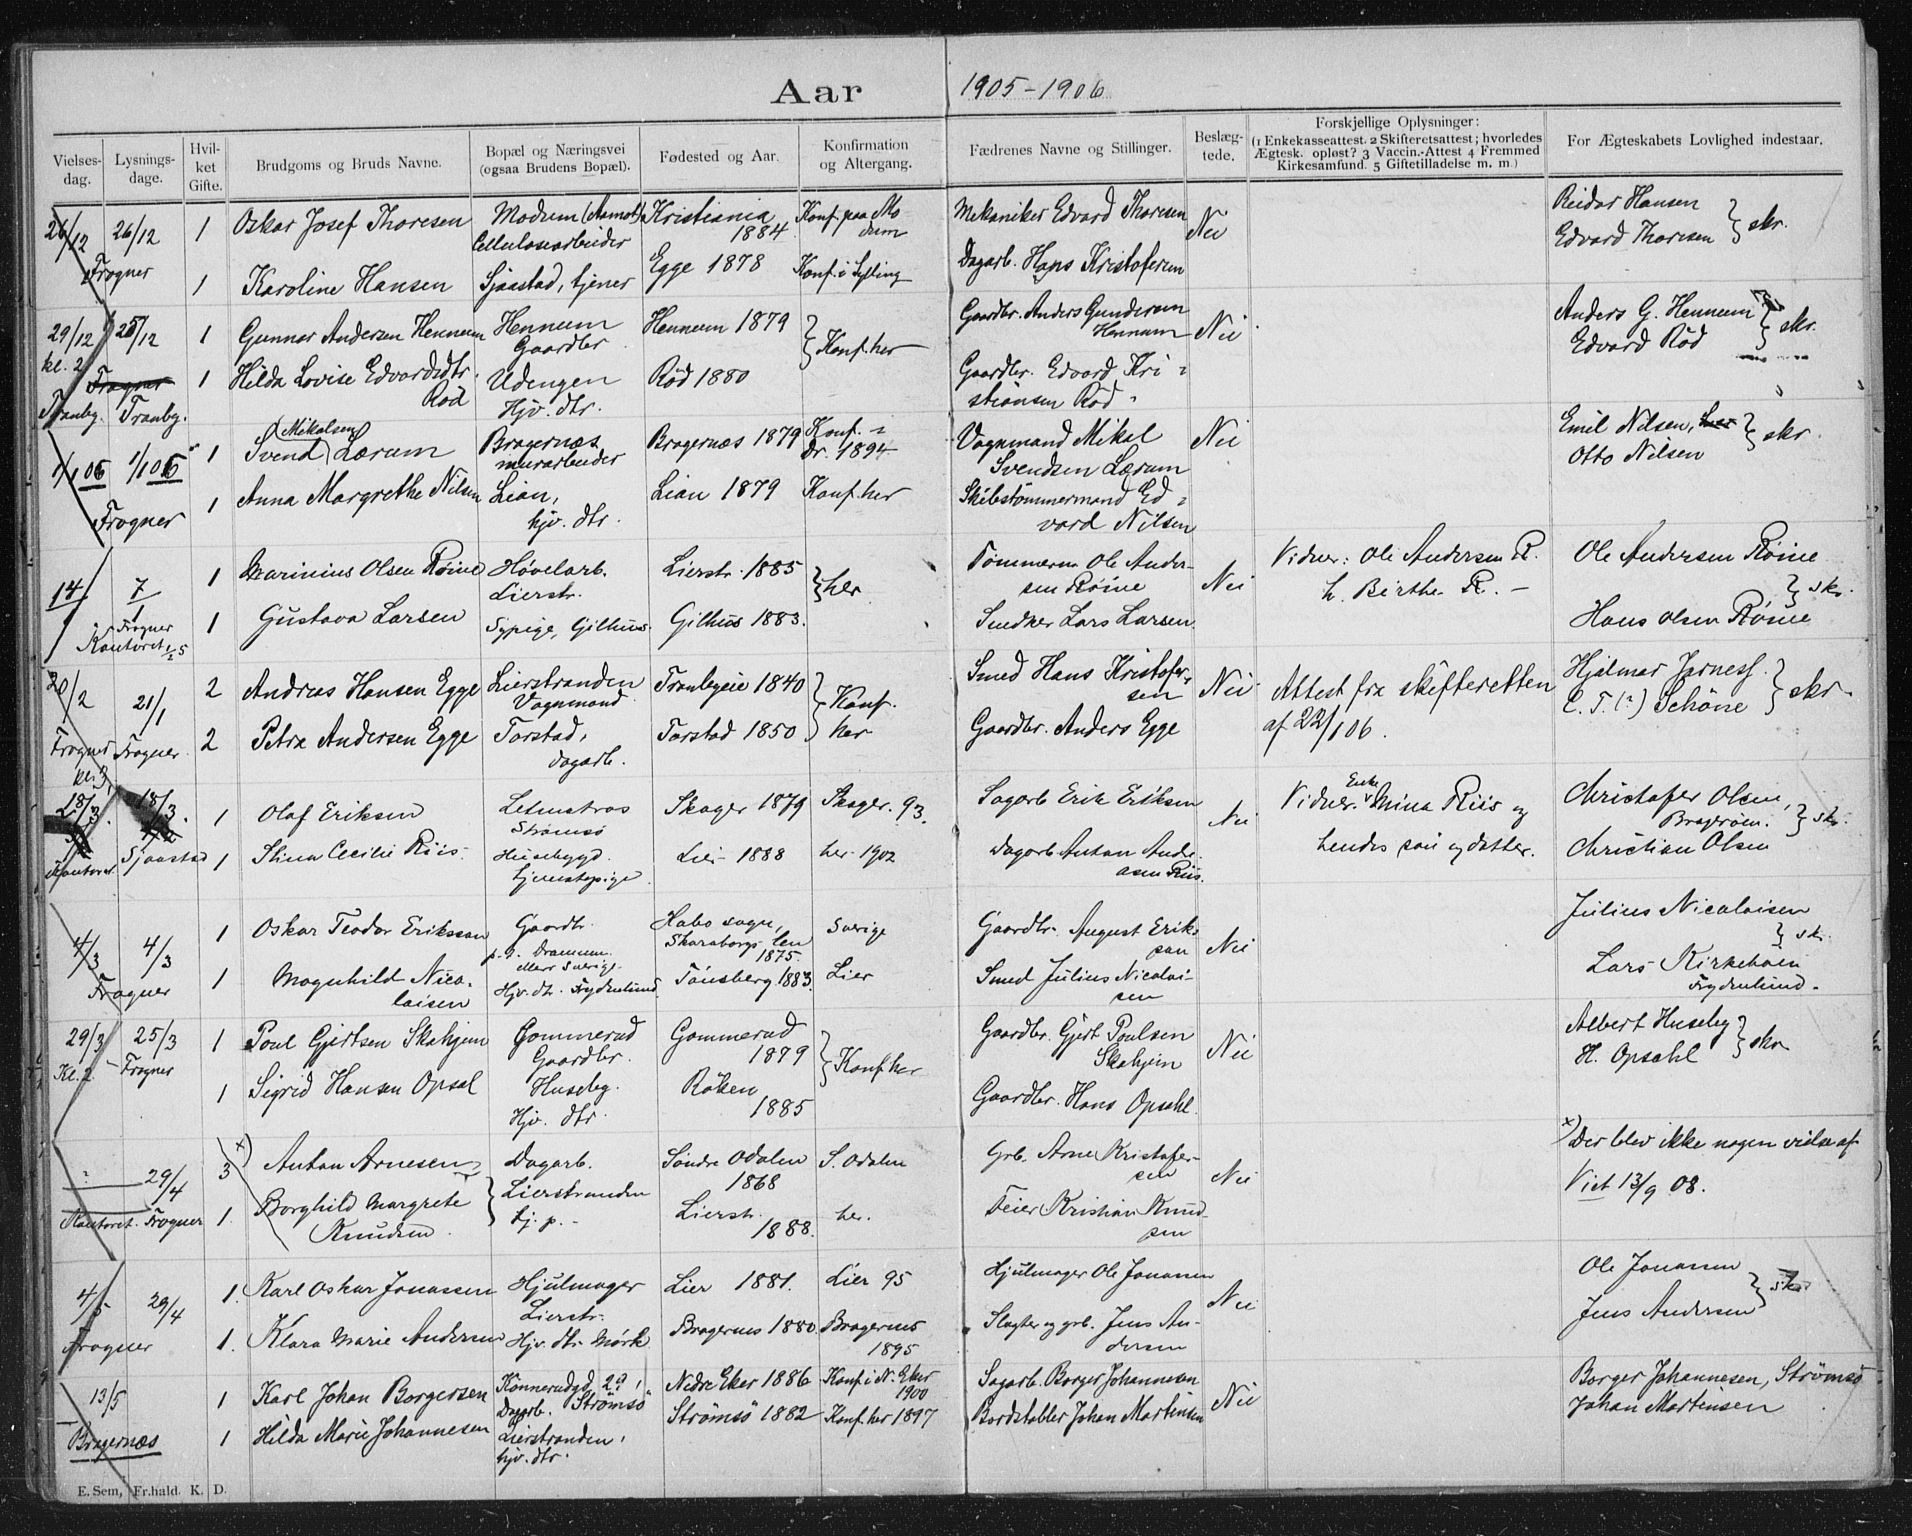 Aar 1905-1906
Vielses-dag. Lysnings-dage. Hvil-ket Gifte. Brudgoms og Bruds Navne. Bopæl og Næringsvei (ogsaa Brudens Bopæl). Fødested og Aar. Konfirmation og Altergang. Fædrenes Navne og Stillinger. Beslæg-tede. Forskjellige Oplysninger: (1 Enkekasseattest. 2 Skifteretsattest; hvorledes Ægtesk. opløst? 3 Vaccin.-Attest 4 Fremmed Kirkesamfund. 5 Giftetilladelse m. m.) For Ægteskabets Lovlighed indestaar.
26/12 26/12 1 Oskar Josef Thoresen Modum (Aamot) Cellulosearbeider Kristiania 1884 Konf. paa Modum Mekaniker Edvard Thoresen Nei Reidar Hansen Edvard Thoresen } skr.
Frogner 1 Karoline Hansen Sjaastad, tjener Egge 1878 Konf. i Sylling Dagarb. Hans Kristofersen
29/12 kl. 2 25/12 1 Gunnar Andersen Hennum Hennum Gaardbr. Hennum 1879 } Konf. her Gaardbr. Anders Gundersen Hennum Nei Anders G. Hennum Edvard Rød } skr.
Frogner Tranby. Tranby. 1 Hilda Lovise Edvardsdtr. Rød Udengen Hjv. dtr. Rød 1880 Gaardbr. Edvard Kristiansen Rød
1/1 06 1/1 06 1 Svend (Mikalsen) Lærum Bragernæs murarbeider Bragernæs 1879 Konf. i Dr. 1894 Vognmand Mikal Svendsen Lærum Nei Emil Nilsen, Otto Nilsen } skr
Frogner 1 Anna Margrethe Nilsen Lian, hjv. dtr. Lian 1879 Konf. her Skibstømmermand Edvard Nilsen
14/1 7/1 Frogner 1 Marinius Olsen Røine Høvelarb. Lierstr. Lierstr. 1885 } her Tømmerm. Ole Andersen Røine Nei Vidner: Ole Andersen R. h. Birthe R. – Ole Andersen Røine } skr.
Kontoret 1 Gustava Larsen Sypige, Gilhus. Gilhus 1883. Snedker Lars Larsen Hans Olsen Røine
20/2 21/1 2 Andreas Hansen Egge Lierstranden Vognmand Tranbyeie 1840 } Konf. her Smed Hans Kristofersen Nei Attest fra skifteretten af 22/1 06. Hjalmar Jarness. C. T. (?) Schöne } skr.
Frogner kl. 3 Frogner. 2 Petra Andersen Egge Tarstad, dagarb. Tarstad 1850 Gaardbr. Anders Egge
18/3. 18/3. 1 Olaf Eriksen Strømsø Skoger 1879 Skoger. 93. Sagarb Erik Eriksen Nei Vidner: Enke Mina Riis og hendes søn og datter. Christofer Olsen, Bragerøen. } skr.
Kontoret Sjaastad 1 Stina Cecilie Riis. Husebygd. tjenestepige Lier 1888 her 1902 Dagarb Anton Andreasen Riis. Christian Olsen
4/3 4/3 1 Oskar Teodor Eriksson Gaardbr. Habo sogn, Skaraborgs len 1875. Sverige Gaardbr. August Eriksson Nei Julius Nicolaisen } skr.
Frogner 1 Magnhild Nicolaisen Hjv. dtr. Frydenlund. Tønsberg 1883. Lier Smed Julius Nicolaisen Lars Kirkebøen Frydenlund.
29/3 Kl. 2 25/3 Frogner 1 Poul Gjertsen Skahjem Gommerud Gaardbr. Gommerud 1879 } Konf her Gaardbr. Gjert Poulsen Skahjem Nei Albert Huseby H. Opsahl } skr
1 Sigrid Hansen Opsal Huseby. Hjv. dtr. Røken 1885 Gaardbr. Hans Opsahl.
29/4 3 x) Anton Arnesen Dagarb. Lierstranden Søndre Odalen 1868 S. Odalen Grb. Arne Kristofersen Nei x) Der blev ikke nogen vielse af Viet 13/9 08.
Kontoret. Frogner 1. Borghild Margrete Knudsen tj. p. – Lierstr. 1888. her. Feier Kristian Knudsen
4/5 29/4 1. Karl Oskar Jonassen Hjulmager Lierstr. Lier 1881. Lier 95 Hjulmager Ole Jonassen Nei Ole Jonassen } skr
Frogner 1. Klara Marie Andersen Hjv. dtr. Mørk Bragernes 1880. Bragernes 1895 Slagter og grb. Jens Andersen Jens Andersen
13/5 1 Karl Johan Borgersen Konnerudgd. Dagarb. Strømsø Nedre Eker 1886 Konf i N. Eker 1900 Sagarb. Borger Johannesen Nei Borger Johannesen, Strømsø
Bragernæs 1 Hilda Marie Johannesen Lierstranden, hjv. dtr. Strømsø 1882 Konf. her 1897 Bordstabler Johan Martinsen Johan Martinsen
E. Sem, Fr.hald. K. D.